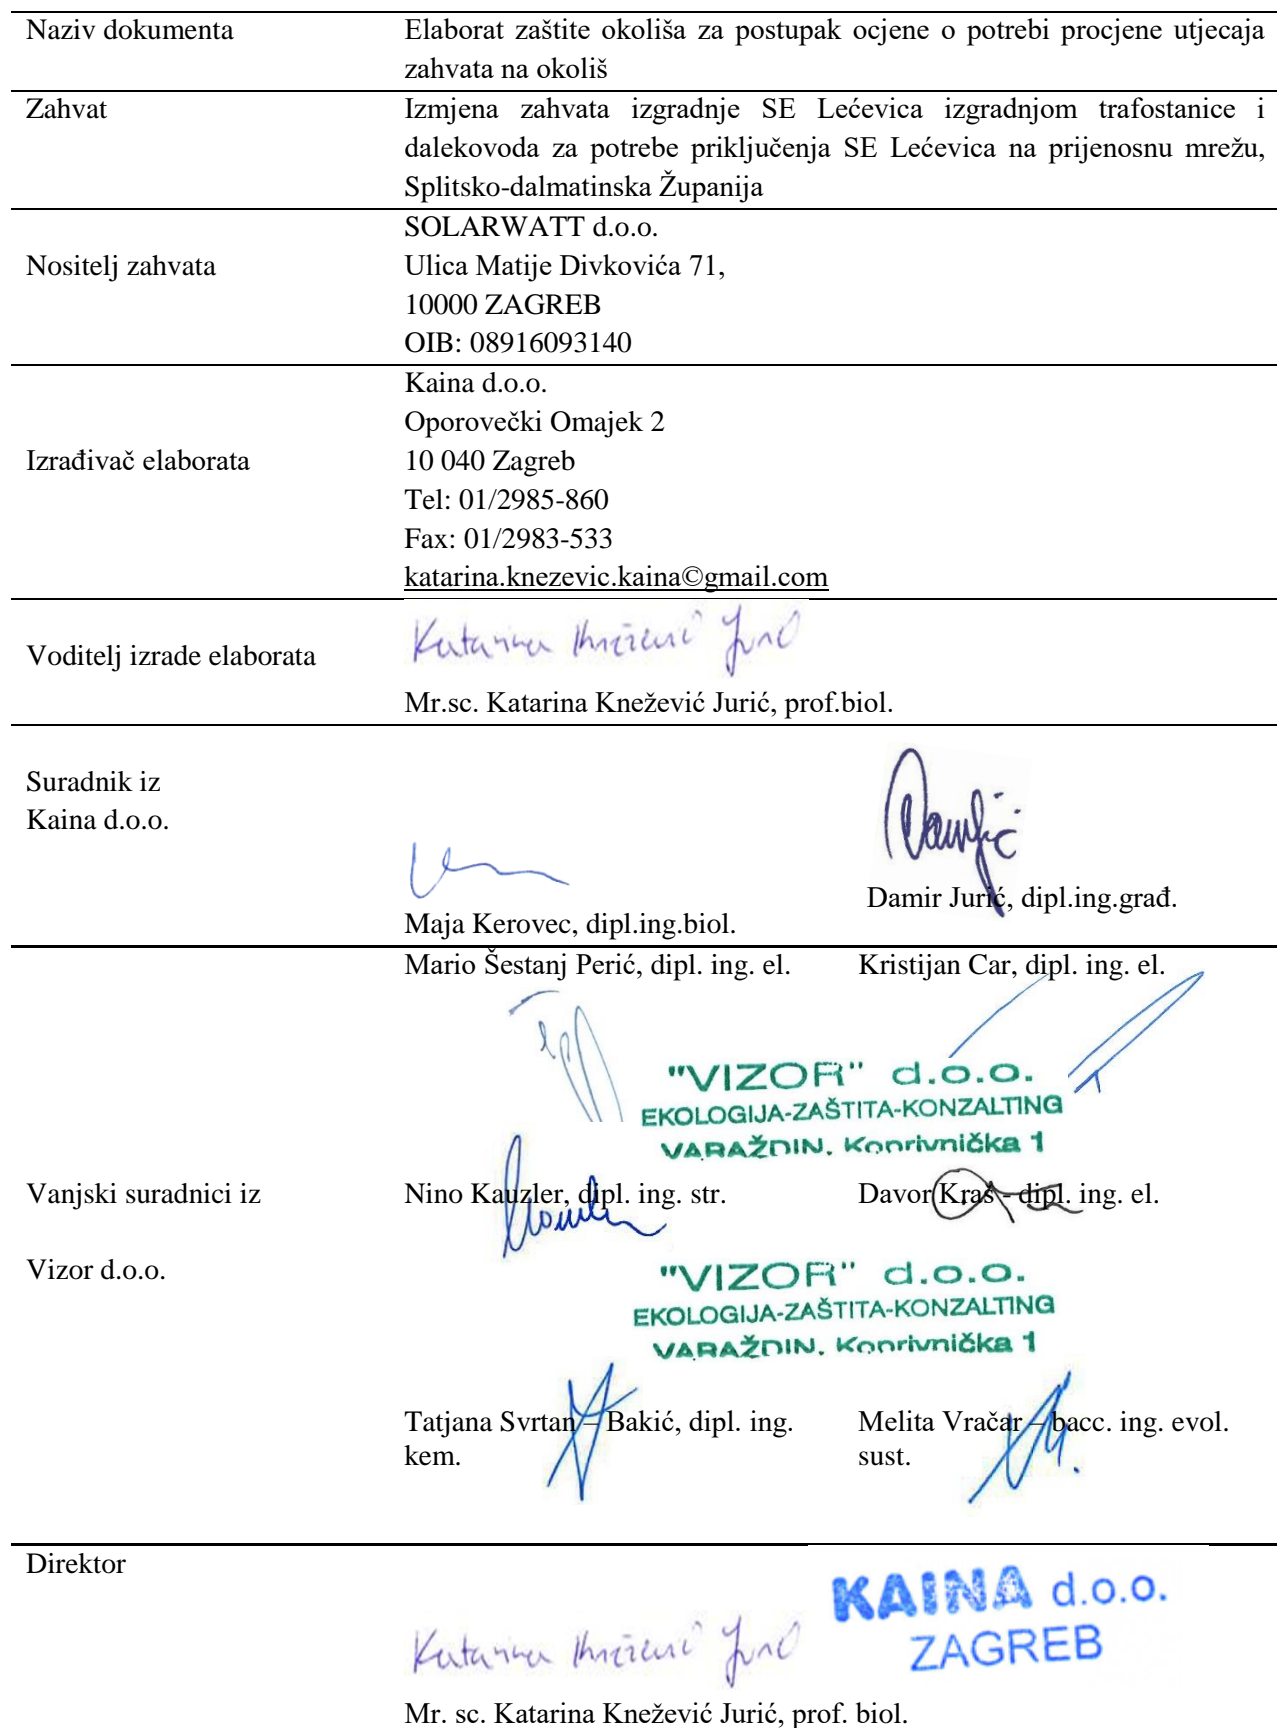 Naziv dokumenta
Elaborat zaštite okoliša za postupak ocjene o potrebi procjene utjecaja
zahvata na okoliš
Zahvat
Izmjena zahvata izgradnje SE Lećevica izgradnjom trafostanice i
dalekovoda za potrebe priključenja SE Lećevica na prijenosnu mrežu,
Splitsko-dalmatinska Županija
Nositelj zahvata
SOLARWATT d.o.o.
Ulica Matije Divkovića 71,
10000 ZAGREB
OIB: 08916093140
Izrađivač elaborata
Kaina d.o.o.
Oporovečki Omajek 2
10 040 Zagreb
Tel: 01/2985-860
Fax: 01/2983-533
katarina.knezevic.kaina©gmail.com
Voditelj izrade elaborata
Katarina Knežević Jurić
Mr.sc. Katarina Knežević Jurić, prof.biol.
Suradnik iz
Kaina d.o.o.
Maja Kerovec, dipl.ing.biol.
Damir Jurić, dipl.ing.građ.
Vanjski suradnici iz
Vizor d.o.o.
Mario Šestanj Perić, dipl. ing. el.
Kristijan Car, dipl. ing. el.
"VIZOR" d.o.o.
EKOLOGIJA-ZAŠTITA-KONZALTING
VARAŽDIN, Koprivnička 1
Nino Kauzler, dipl. ing. str.
Davor Kraš - dipl. ing. el.
"VIZOR" d.o.o.
EKOLOGIJA-ZAŠTITA-KONZALTING
VARAŽDIN, Koprivnička 1
Tatjana Svrtan – Bakić, dipl. ing.
kem.
Melita Vračar – bacc. ing. evol.
sust.
Direktor
Katarina Knežević Jurić
KAINA d.o.o.
ZAGREB
Mr. sc. Katarina Knežević Jurić, prof. biol.